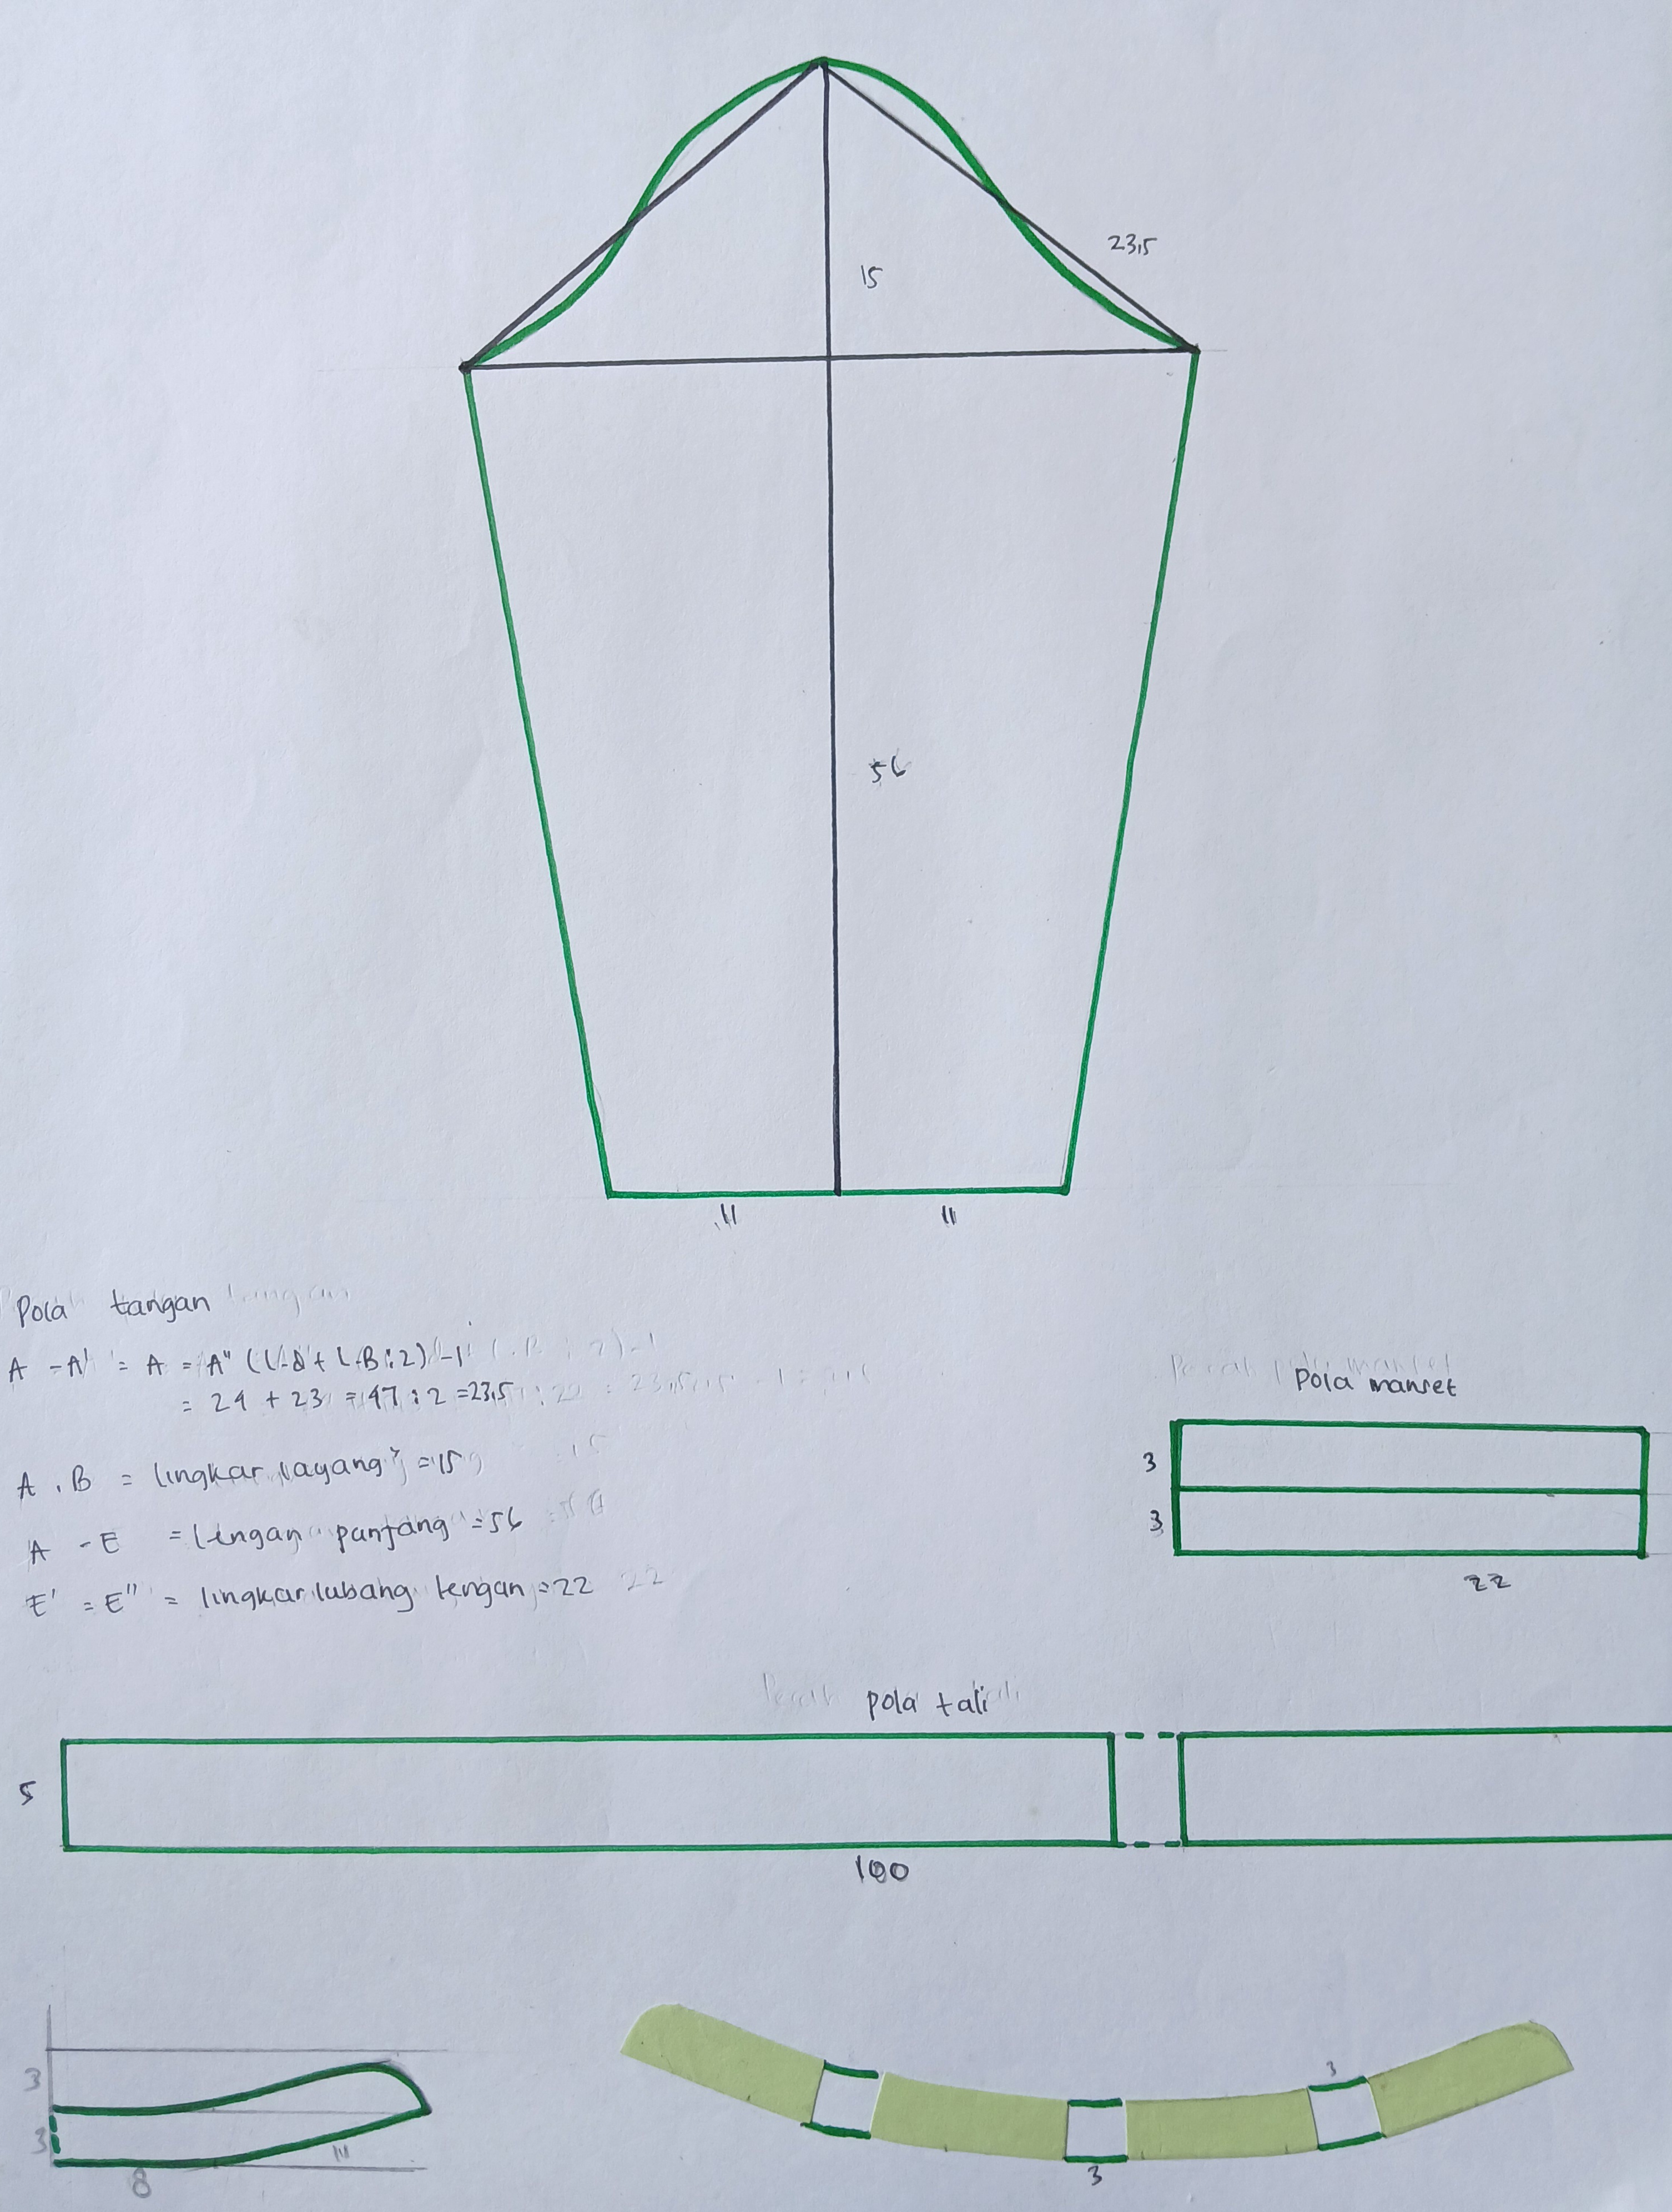 23,5
15
56
11 11
Pola tangan
A - A' = A = A" (l.d + l.B : 2) - 1
= 24 + 23 = 47 : 2 = 23,5
A . B = lingkar layang² = 15
A - E = lengan panjang = 56
E' = E" = lingkar lubang lengan = 22
Pola manset
3
3
22
pola tali
5
100
3
3
8
11
3
3